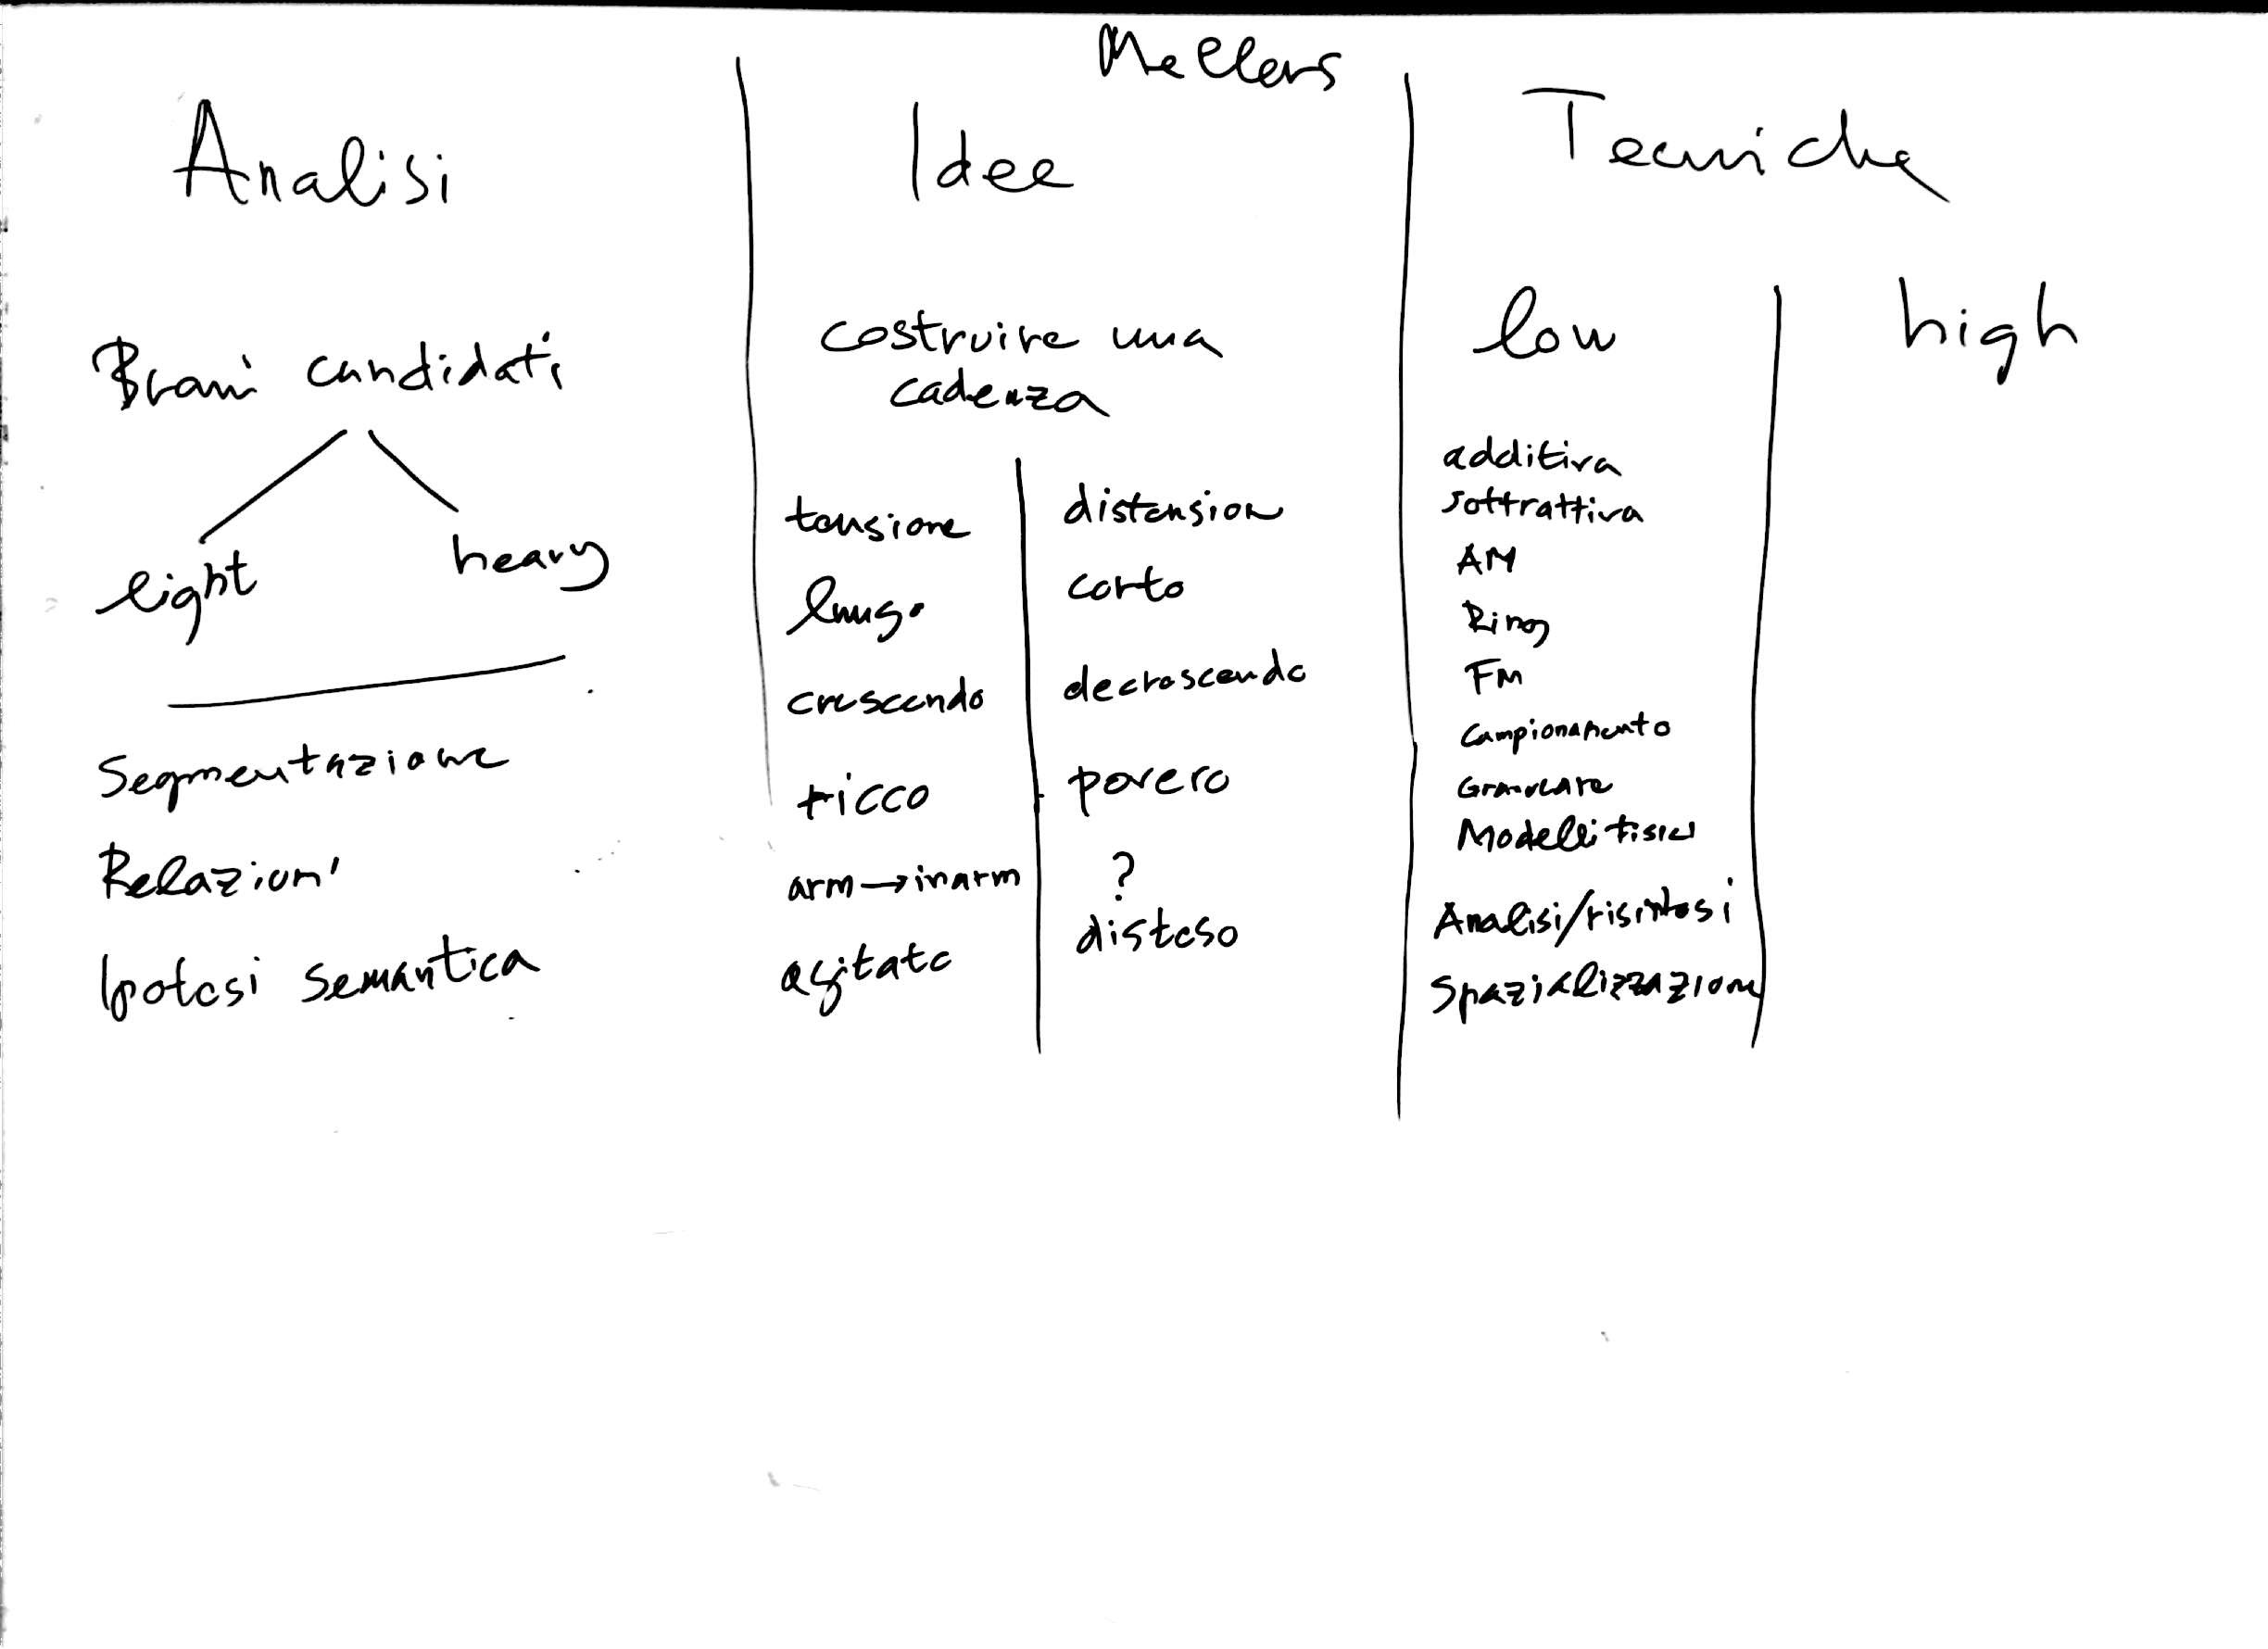 Mellers
Analisi
Brani candidati
light
heavy
Segmentazione
Relazioni
Ipotesi semantica
Idee
costruire una
cadenza
tensione
distension
lungo
corto
crescendo
decrescendo
ricco
povero
arm→inarm
?
agitato
disteso
Tecniche
low
high
additiva
sottrattiva
AM
Ring
FM
Campionamento
Granulare
Modelli fisici
Analisi/risintesi
Spazializzazione